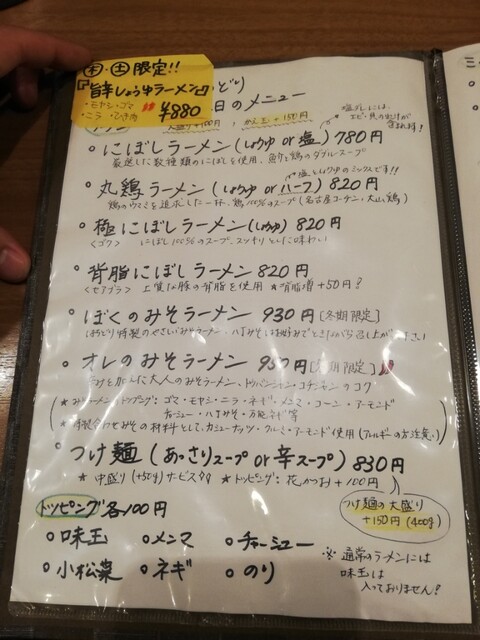 木・土限定!!
『旨辛しょうゆラーメン』
・モヤシ・ゴマ
・ニラ・ひき肉
¥880
日のメニュー
大盛り+100円
+150円
塩ダレには
エビ・貝のだしが
含まれます!
・にぼしラーメン(しょうゆ or 塩) 780円
厳選した数種類のにぼしを使用、魚介と鶏のダブルスープ
塩としょうゆのミックスです!!
・丸鶏ラーメン(しょうゆ or ハーフ) 820円
鶏のウマミを追求した一杯、鶏100%スープ(名古屋コーチン、大山鶏)
・極にぼしラーメン(しょうゆ) 820円
<ゴク> にぼし100%のスープ、スッキリとした味わい
・背脂にぼしラーメン 820円
<セアブラ> 上質な豚の背脂を使用 ★背脂増+50円?
・ぼくのみそラーメン 930円[冬期限定]
特製のやさいみそラーメン、
・オレのみそラーメン 950円[冬期限定]
大人のみそラーメン、トウバンジャン・コチュジャンのコク
★みそラーメントッピング:ゴマ・モヤシ・ニラ・ネギ・メンマ・コーン・アーモンド
チャーシュー・ハチみそ・万能ネギ等
合わせみその材料として、カシューナッツ・クルミ・アーモンド使用(アレルギーの方注意)
・つけ麺(あっさりスープ or 辛スープ) 830円
★中盛り(+50g)サービス
★トッピング:花かつお+100円
つけ麺の大盛り
+150円(400g)
トッピング各100円
○味玉 ○メンマ ○チャーシュー
○小松菜 ○ネギ ○のり
※通常のラーメンには
味玉は
入っておりません?